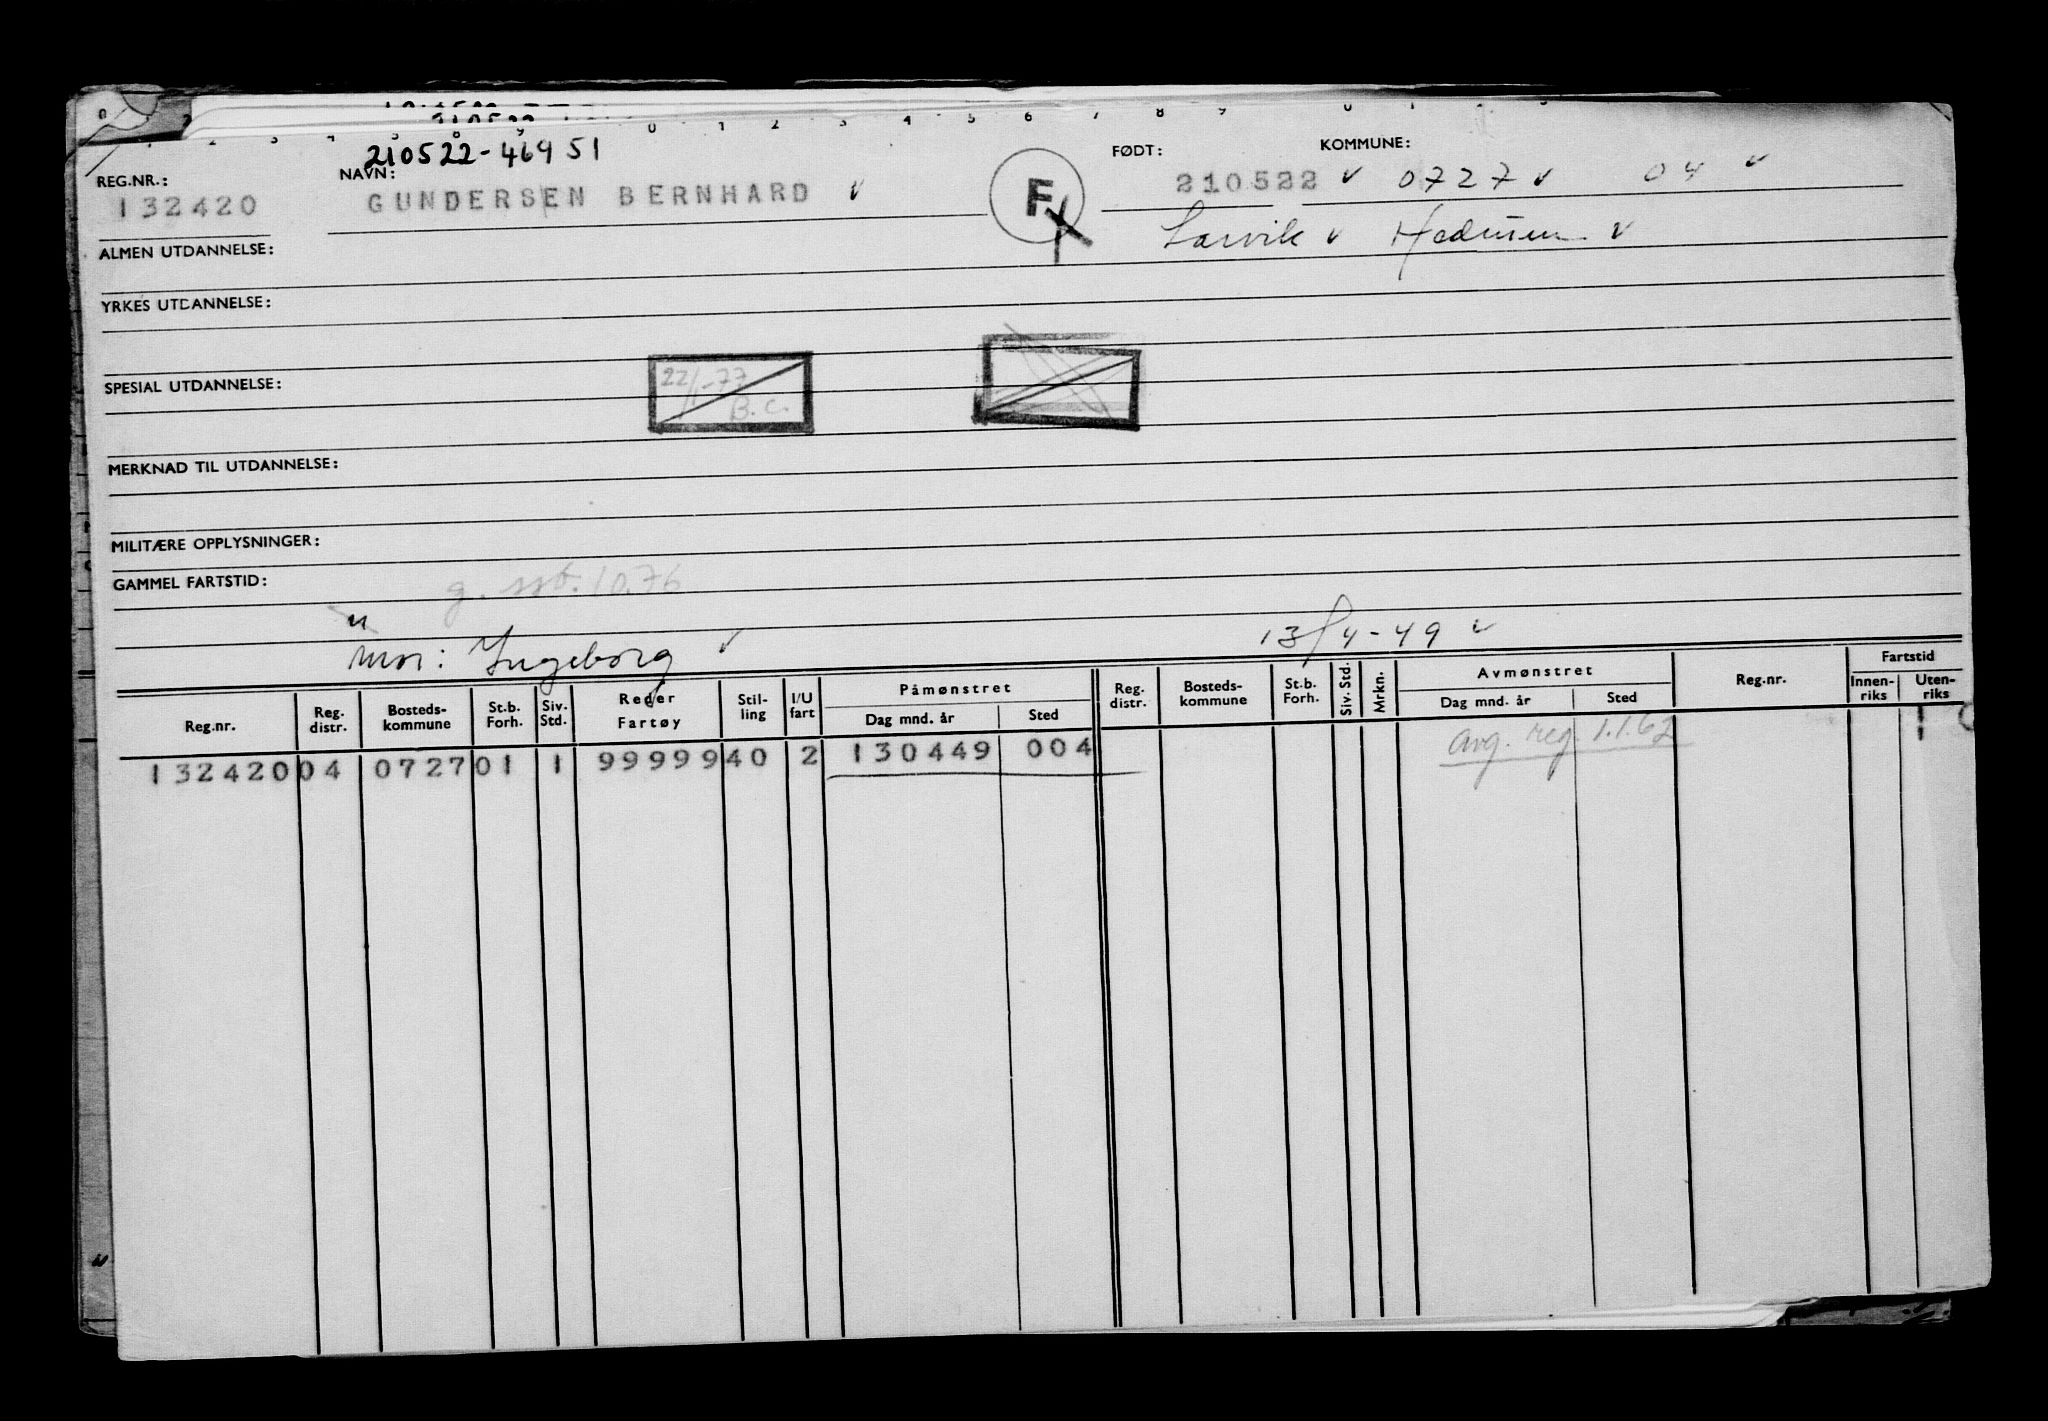 210522-46951
REG.NR.: NAVN: FØDT: KOMMUNE:
132420 GUNDERSEN BERNHARD F 210522 0727 04
Larvik Hedrum
ALMEN UTDANNELSE:
YRKES UTDANNELSE:
SPESIAL UTDANNELSE:
22/1-77
B.C.
MERKNAD TIL UTDANNELSE:
MILITÆRE OPPLYSNINGER:
GAMMEL FARTSTID:
10.76
Mor: Ingeborg 13/4-49
Reg.nr. Reg. distr. Bosteds-kommune St.b. Forh. Siv. Std. Reder Fartøy Stil-ling I/U fart Påmønstret Dag mnd. år Sted Reg. distr. Bosteds-kommune St.b. Forh. Siv. Std. Mrkn. Avmønstret Dag mnd. år Sted Reg.nr. Fartstid Innen-riks Uten-riks
132420 04 0727 01 1 99999 40 2 130449 004 Avg. reg. 1.1.62